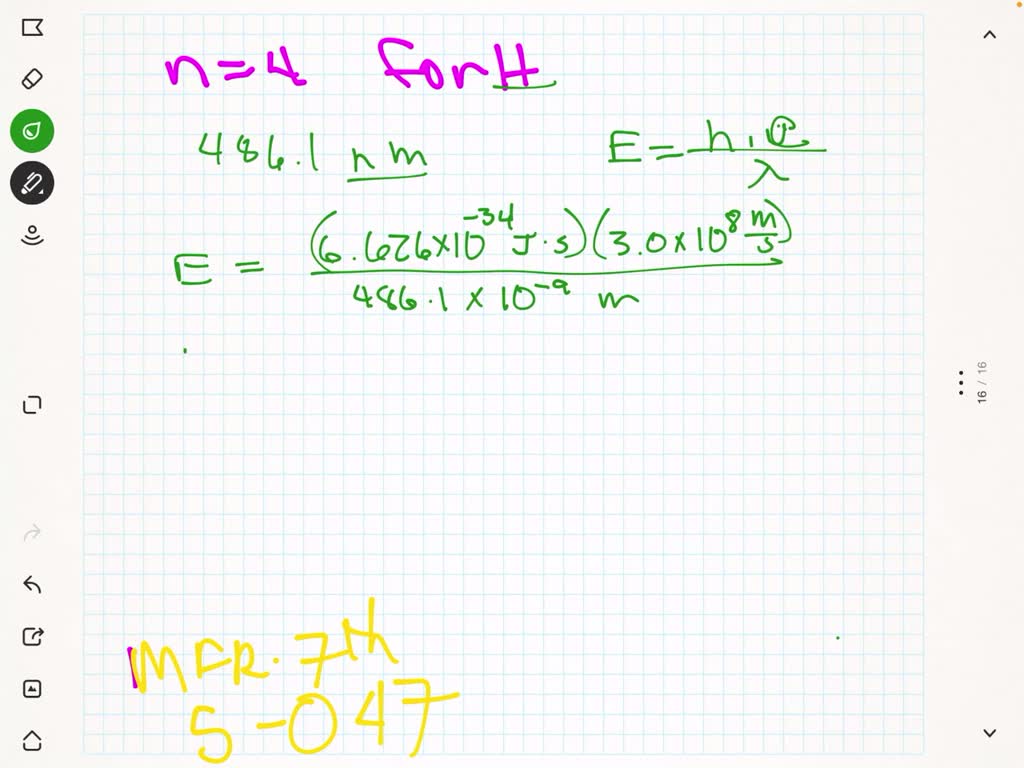 n=4 for H
486.1 nm
E = h.c / λ
E = (6.626×10^-34 J·s)(3.0×10^8 m/s) / 486.1 × 10^-9 m
16 / 16
MFR. 7th
5-047